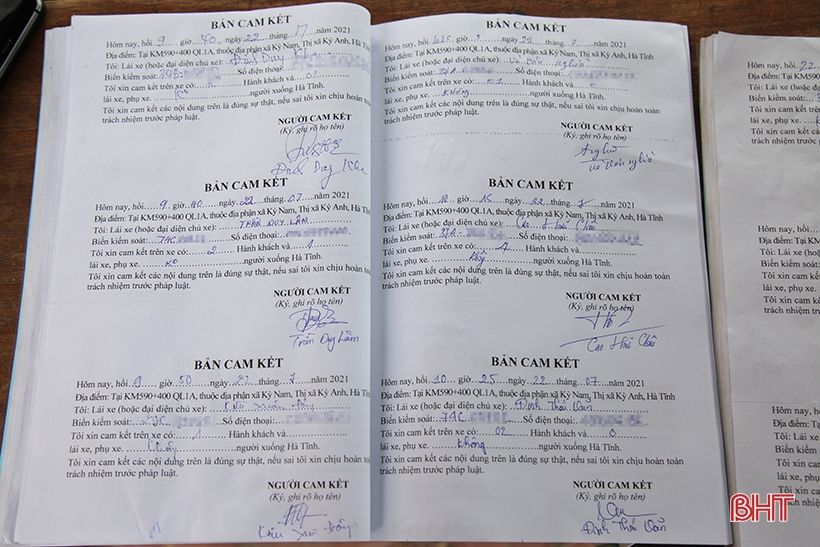 BẢN CAM KẾT
Hôm nay, hồi 9 giờ 40 22 tháng năm 2021
Địa điểm: Tại KM590+400 QL1A, thuộc địa phận xã Kỳ Nam, Thị xã Kỳ Anh, Hà
Tôi: Lái xe (hoặc đại diện chủ xe): Đinh Duy
Biển kiểm soát: Số điện thoại:
Tôi xin cam kết trên xe có: Hành khách và 01
lái xe, phụ xe. người xuống Hà Tĩnh.
Tôi xin cam kết các nội dung trên là đúng sự thật, nếu sai tôi xin chịu hoàn toàn
trách nhiệm trước pháp luật.
NGƯỜI CAM KẾT
(Ký, ghi rõ họ tên)
Đinh Duy
BẢN CAM KẾT
Hôm nay, hồi 9 giờ 40 ngày 22 tháng 07 năm 2021
Địa điểm: Tại KM590+400 QL1A, thuộc địa phận xã Kỳ Nam, Thị xã Kỳ Anh, Hà
Tôi: Lái xe (hoặc đại diện chủ xe): TRẦN DUY LÂM
Biển kiểm soát: 74C Số điện thoại:
Tôi xin cam kết trên xe có: 2 Hành khách và 1
lái xe, phụ xe. KO người xuống Hà Tĩnh.
Tôi xin cam kết các nội dung trên là đúng sự thật, nếu sai tôi xin chịu hoàn toàn
trách nhiệm trước pháp luật.
NGƯỜI CAM KẾT
(Ký, ghi rõ họ tên)
Trần Duy Lâm
BẢN CAM KẾT
Hôm nay, hồi 9 giờ 50 ngày 22 tháng 7 năm 2021
Địa điểm: Tại KM590+400 QL1A, thuộc địa phận xã Kỳ Nam, Thị xã Kỳ Anh, Hà
Tôi: Lái xe (hoặc đại diện chủ xe):
Biển kiểm soát: Số điện thoại:
Tôi xin cam kết trên xe có: 1 Hành khách và
lái xe, phụ xe. người xuống Hà Tĩnh.
Tôi xin cam kết các nội dung trên là đúng sự thật, nếu sai tôi xin chịu hoàn toàn
trách nhiệm trước pháp luật.
NGƯỜI CAM KẾT
(Ký, ghi rõ họ tên)
BẢN CAM KẾT
Hôm nay, hồi giờ ngày 22 tháng 7 năm 2021
Địa điểm: Tại KM590+400 QL1A, thuộc địa phận xã Kỳ Nam, Thị xã Kỳ Anh, Hà
Tôi: Lái xe (hoặc đại diện chủ xe): Võ Văn Nghĩa
Biển kiểm soát: 74A Số điện thoại:
Tôi xin cam kết trên xe có: 01 Hành khách và 0
lái xe, phụ xe. Không người xuống Hà Tĩnh.
Tôi xin cam kết các nội dung trên là đúng sự thật, nếu sai tôi xin chịu hoàn toàn
trách nhiệm trước pháp luật.
NGƯỜI CAM KẾT
(Ký, ghi rõ họ tên)
Nghĩa
Võ Văn Nghĩa
BẢN CAM KẾT
Hôm nay, hồi 10 giờ 15 ngày 22 tháng 7 năm 2021
Địa điểm: Tại KM590+400 QL1A, thuộc địa phận xã Kỳ Nam, Thị xã Kỳ Anh, Hà
Tôi: Lái xe (hoặc đại diện chủ xe): Cao Hữu Châu
Biển kiểm soát: Số điện thoại:
Tôi xin cam kết trên xe có: Hành khách và
lái xe, phụ xe. người xuống Hà Tĩnh.
Tôi xin cam kết các nội dung trên là đúng sự thật, nếu sai tôi xin chịu hoàn toàn
trách nhiệm trước pháp luật.
NGƯỜI CAM KẾT
(Ký, ghi rõ họ tên)
Cao Hữu Châu
BẢN CAM KẾT
Hôm nay, hồi 10 giờ 25 ngày 22 tháng 07 năm 2021
Địa điểm: Tại KM590+400 QL1A, thuộc địa phận xã Kỳ Nam, Thị xã Kỳ Anh, Hà
Tôi: Lái xe (hoặc đại diện chủ xe): Đinh Thái
Biển kiểm soát: 74C Số điện thoại:
Tôi xin cam kết trên xe có: 02 Hành khách và 0
lái xe, phụ xe. Không người xuống Hà Tĩnh.
Tôi xin cam kết các nội dung trên là đúng sự thật, nếu sai tôi xin chịu hoàn toàn
trách nhiệm trước pháp luật.
NGƯỜI CAM KẾT
(Ký, ghi rõ họ tên)
Đinh Thái
Hôm nay, hồi 22
Địa điểm: Tại KM590
Tôi: Lái xe (hoặc đại
Biển kiểm soát:
Tôi xin cam kết trên
lái xe, phụ xe.
Tôi xin cam kết các
trách nhiệm trước pháp
Hôm nay, hồi
Địa điểm: Tại KM
Tôi: Lái xe (hoặc
Biển kiểm soát:
Tôi xin cam kết
lái xe, phụ xe.
Tôi xin cam kết
trách nhiệm trước
Hôm nay, hồi
Địa điểm: Tại
Tôi: Lái xe (hoặc
Biển kiểm soát
Tôi xin cam
lái xe, phụ xe
Tôi xin cam
trách nhiệm
BHT